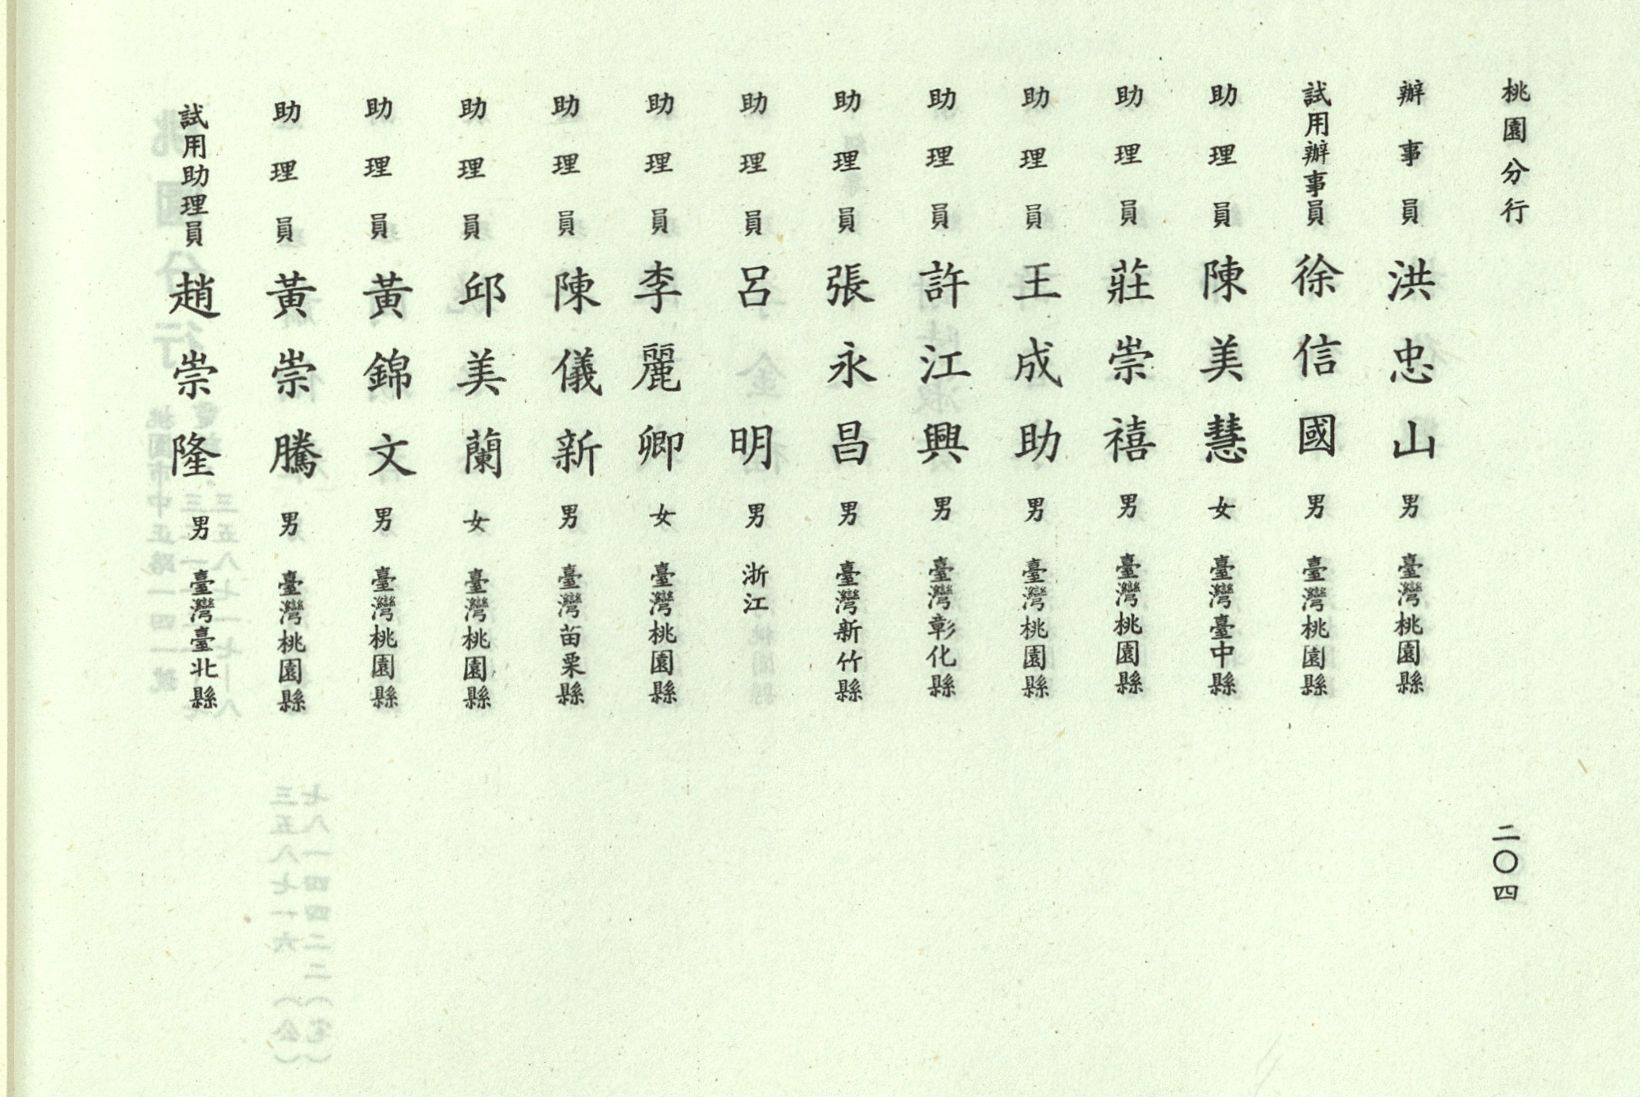 桃園分行
二〇四
辦事員 洪忠山 男 臺灣桃園縣
試用辦事員 徐信國 男 臺灣桃園縣
助理員 陳美慧 女 臺灣臺中縣
助理員 莊崇禧 男 臺灣桃園縣
助理員 王成助 男 臺灣桃園縣
助理員 許江興 男 臺灣彰化縣
助理員 張永昌 男 臺灣新竹縣
助理員 呂明 男 浙江
助理員 李麗卿 女 臺灣桃園縣
助理員 陳儀新 男 臺灣苗栗縣
助理員 邱美蘭 女 臺灣桃園縣
助理員 黃錦文 男 臺灣桃園縣
助理員 黃崇騰 男 臺灣桃園縣
試用助理員 趙崇隆 男 臺灣臺北縣